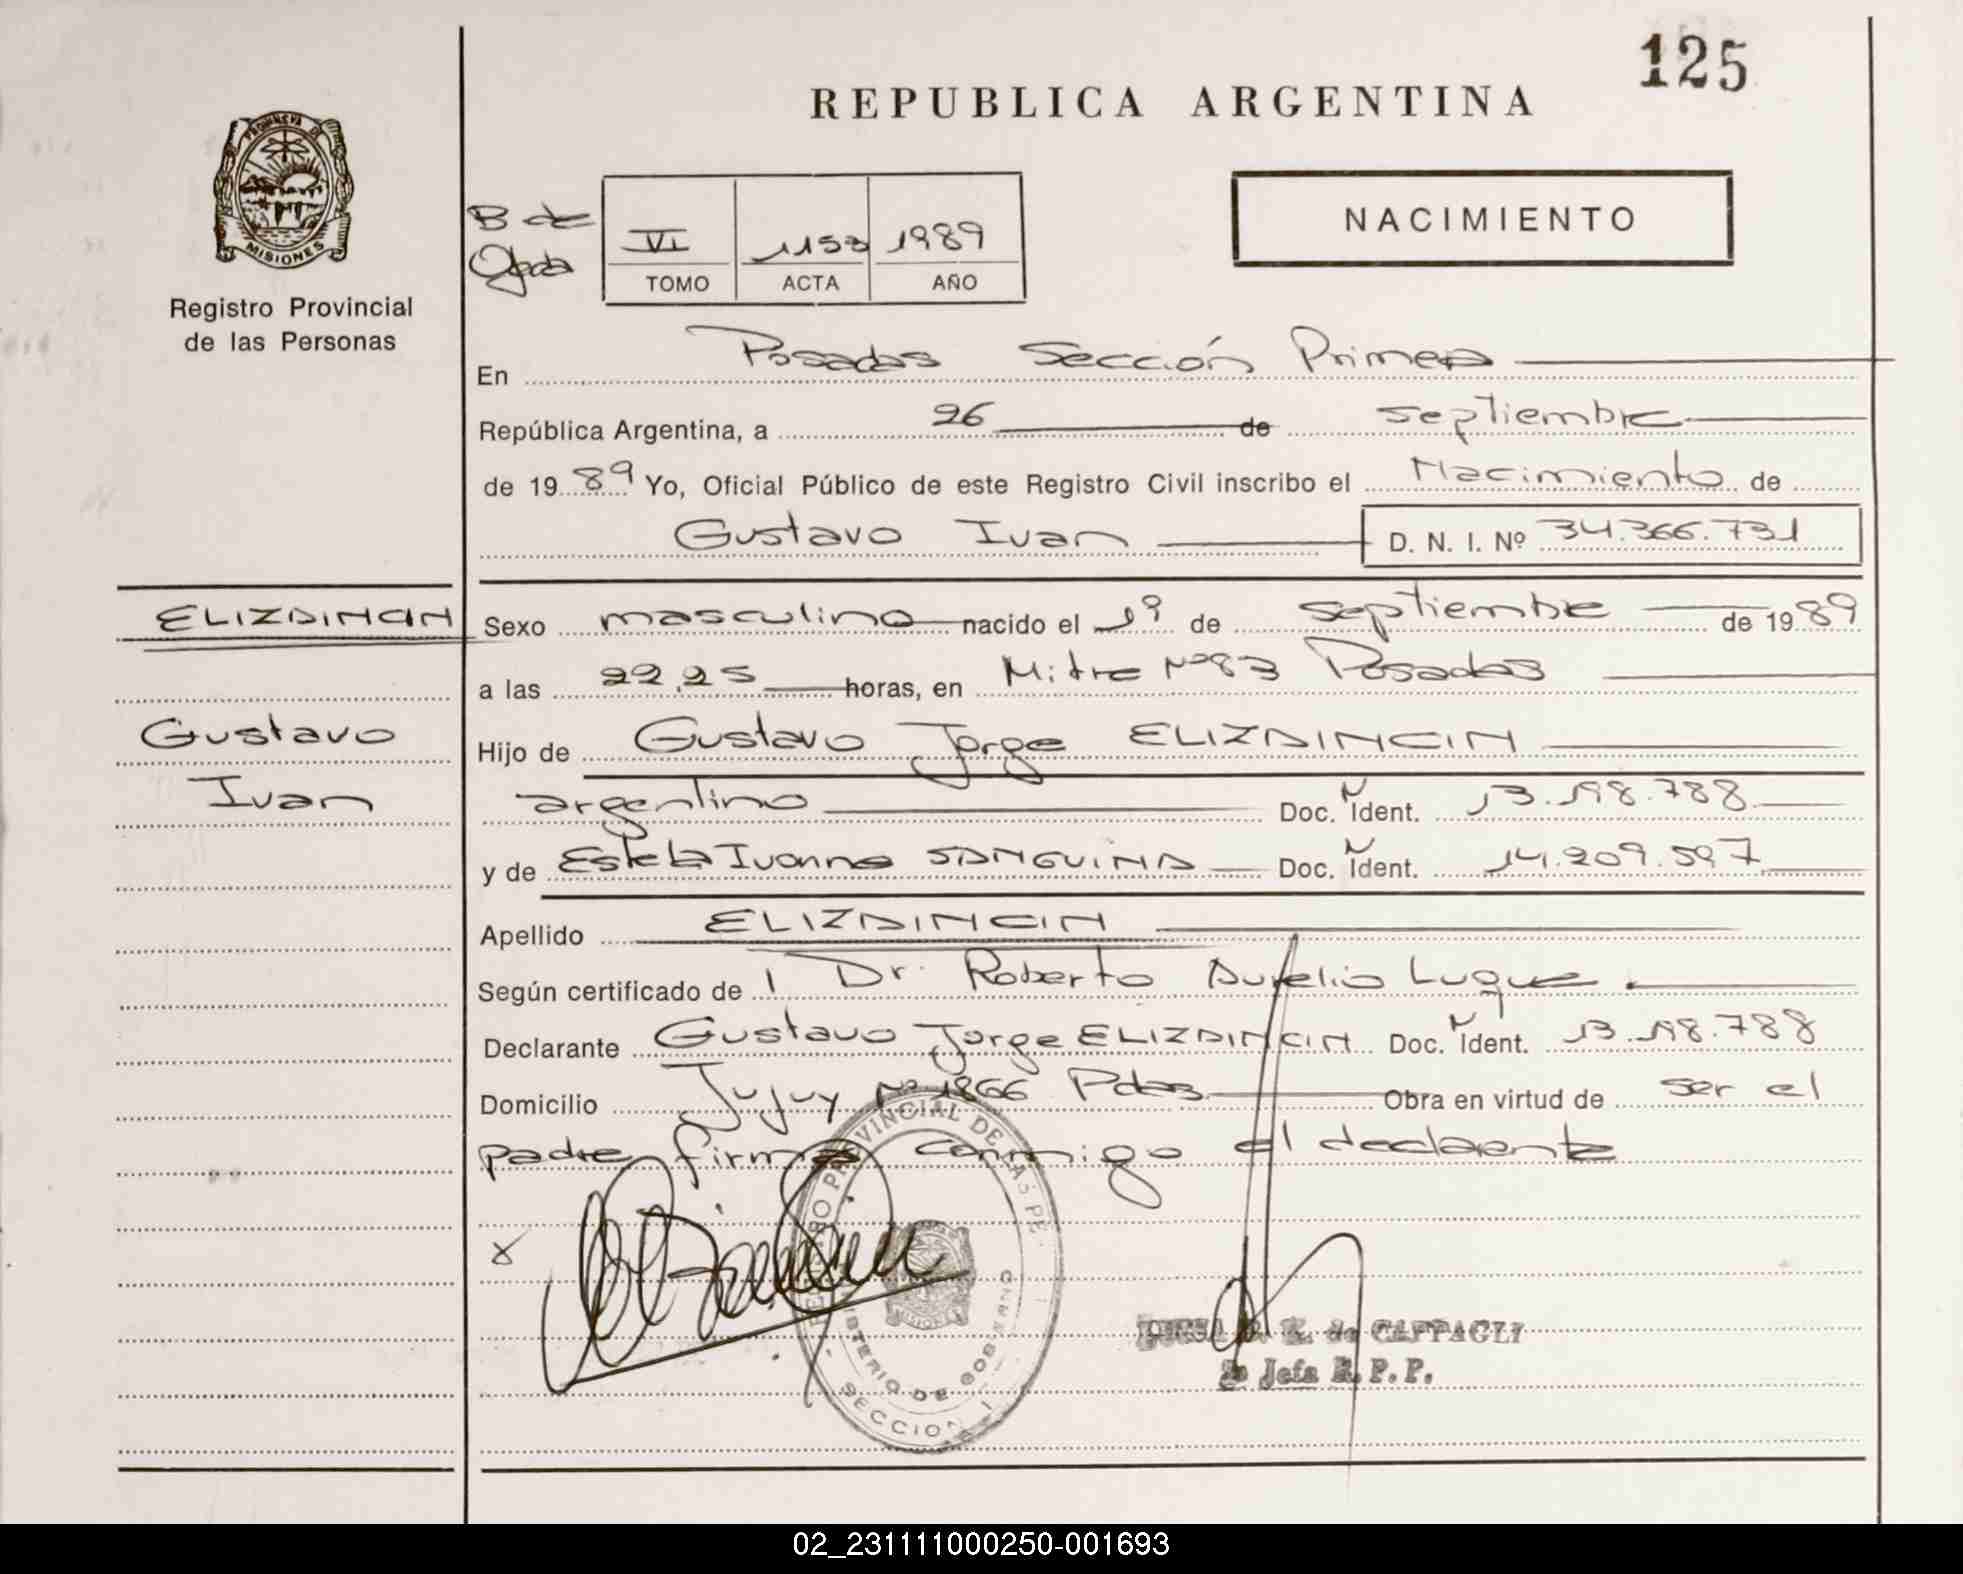 125
REPUBLICA ARGENTINA
PROVINCIA DE
MISIONES
Registro Provincial
de las Personas
B de
Ojeda
VI 1153 1989
TOMO ACTA AÑO
NACIMIENTO
En Posadas Sección Primera
República Argentina, a 26 de septiembre
de 1989 Yo, Oficial Público de este Registro Civil inscribo el Nacimiento de
Gustavo Ivan D. N. I. Nº 34.366.731
ELIZAINCIN
Gustavo
Ivan
Sexo masculino nacido el 1º de septiembre de 1989
a las 22,25 horas, en Mitre Nº 83 Posadas
Hijo de Gustavo Jorge ELIZAINCIN
argentino Doc. N Ident. 13.198.788
y de Estela Ivonne SANGUINA Doc. N Ident. 14.209.597
Apellido ELIZAINCIN
Según certificado de l Dr. Roberto Aurelio Luque
Declarante Gustavo Jorge ELIZAINCIN Doc. N Ident. 13.198.788
Domicilio Jujuy Nº 1866 Pdas Obra en virtud de ser el
padre firma conmigo el declarante
PROVINCIAL DE LAS PE
MINISTERIO DE GOBIERNO
SECCION 1
de CAPPAGLI
Jefa R.P.P.
02_231111000250-001693